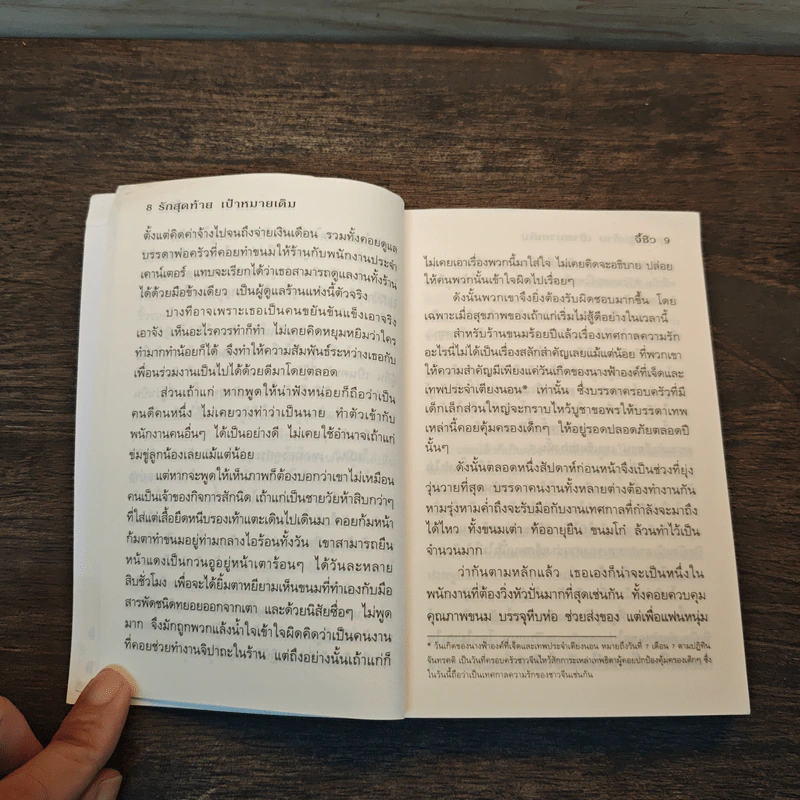 8 รักสุดท้าย เป้าหมายเดิม
ตั้งแต่คิดค่าจ้างไปจนถึงจ่ายเงินเดือน รวมทั้งคอยดูแล
บรรดาพ่อครัวที่คอยทำขนมให้ร้านกับพนักงานประจำ
เคาน์เตอร์ แทบจะเรียกได้ว่าเธอสามารถดูแลงานทั้งร้าน
ได้ด้วยมือข้างเดียว เป็นผู้ดูแลร้านแห่งนี้ตัวจริง
บางทีอาจเพราะเธอเป็นคนขยันขันแข็งเอาจริง
เอาจัง เห็นอะไรควรทำก็ทำ ไม่เคยคิดหยุมหยิมว่าใคร
ทำมากทำน้อยก็ได้ จึงทำให้ความสัมพันธ์ระหว่างเธอกับ
เพื่อนร่วมงานเป็นไปได้ด้วยดีมาโดยตลอด
ส่วนเถ้าแก่ หากพูดให้น่าฟังหน่อยก็ถือว่าเป็น
คนดีคนหนึ่ง ไม่เคยวางท่าว่าเป็นนาย ทำตัวเข้ากับ
พนักงานคนอื่นๆ ได้เป็นอย่างดี ไม่เคยใช้อำนาจเถ้าแก่
ข่มขู่ลูกน้องเลยแม้แต่น้อย
แต่หากจะพูดให้เห็นภาพก็ต้องบอกว่าเขาไม่เหมือน
คนเป็นเจ้าของกิจการสักนิด เถ้าแก่เป็นชายวัยห้าสิบกว่าๆ
ที่ใส่แต่เสื้อยืดหนีบรองเท้าแตะเดินไปเดินมา คอยก้มหน้า
ก้มตาทำขนมอยู่ท่ามกลางไอร้อนทั้งวัน เขาสามารถยืน
หน้าแดงเป็นกวนอูอยู่หน้าเตาร้อนๆ ได้วันละหลาย
สิบชั่วโมง เพื่อจะได้ยิ้มตาหยียามเห็นขนมที่ทำเองกับมือ
สารพัดชนิดทยอยออกจากเตา และด้วยนิสัยซื่อๆ ไม่พูด
มาก จึงมักถูกพวกแล้งน้ำใจเข้าใจผิดคิดว่าเป็นคนงาน
ที่คอยช่วยทำงานจิปาถะในร้าน แต่ถึงอย่างนั้นเถ้าแก่ก็
จี้ซิว 9
ไม่เคยเอาเรื่องพวกนี้มาใส่ใจ ไม่เคยคิดจะอธิบาย ปล่อย
ให้คนพวกนั้นเข้าใจผิดไปเรื่อยๆ
ดังนั้นพวกเขาจึงยิ่งต้องรับผิดชอบมากขึ้น โดย
เฉพาะเมื่อสุขภาพของเถ้าแก่เริ่มไม่สู้ดีอย่างในเวลานี้
สำหรับร้านขนมร้อยปีแล้วเรื่องเทศกาลความรัก
อะไรนี่ไม่ได้เป็นเรื่องสลักสำคัญเลยแม้แต่น้อย ที่พวกเขา
ให้ความสำคัญมีเพียงแค่วันเกิดของนางฟ้าองค์ที่เจ็ดและ
เทพประจำเตียงนอน* เท่านั้น ซึ่งบรรดาครอบครัวที่มี
เด็กเล็กส่วนใหญ่จะกราบไหว้บูชาขอพรให้บรรดาเทพ
เหล่านี้คอยคุ้มครองเด็กๆ ให้อยู่รอดปลอดภัยตลอดปี
นั้นๆ
ดังนั้นตลอดหนึ่งสัปดาห์ก่อนหน้าจึงเป็นช่วงที่ยุ่ง
วุ่นวายที่สุด บรรดาคนงานทั้งหลายต่างต้องทำงานกัน
หามรุ่งหามค่ำถึงจะรับมือกับงานเทศกาลที่กำลังจะมาถึง
ได้ไหว ทั้งขนมเต่า ท้ออายุยืน ขนมโก๋ ล้วนทำไว้เป็น
จำนวนมาก
ว่ากันตามหลักแล้ว เธอเองก็น่าจะเป็นหนึ่งใน
พนักงานที่ต้องวิ่งหัวปั่นมากที่สุดเช่นกัน ทั้งคอยควบคุม
คุณภาพขนม บรรจุหีบห่อ ช่วยส่งของ แต่เพื่อแฟนหนุ่ม
* วันเกิดของนางฟ้าองค์ที่เจ็ดและเทพประจำเตียงนอน หมายถึงวันที่ 7 เดือน 7 ตามปฏิทิน
จันทรคติ เป็นวันที่ครอบครัวชาวจีนไหว้สักการะเหล่าเทพธิดาผู้คอยปกป้องคุ้มครองเด็กๆ ซึ่ง
ในวันนี้ถือว่าเป็นเทศกาลความรักของชาวจีนเช่นกัน